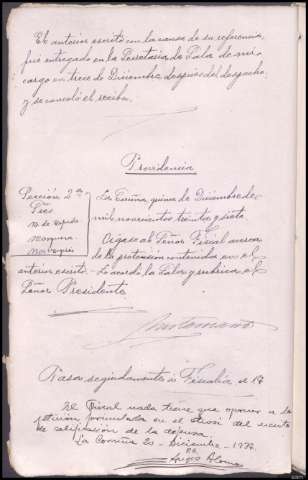 El anterior escrito con la causa de su referencia,
fué entregado en la Secretaria de Sala de mi
cargo en trece de Diciembre despues del despacho;
y se canceló el recibo.
Providencia
Sección 2ª
Sres
La Coruña, quince de Diciembre de
mil novecientos treinta y siete
Oigase al Señor Fiscal acerca
de la pretension contenida en el
anterior escrito. Lo acordó la Sala y rubrica el
Señor Presidente
Pasa seguidamente a Fiscalia
El Fiscal nada tiene que oponer a la
petición formulada en el otrosí del escrito
de calificación de la defensa.
La Coruña 20 Diciembre 1937